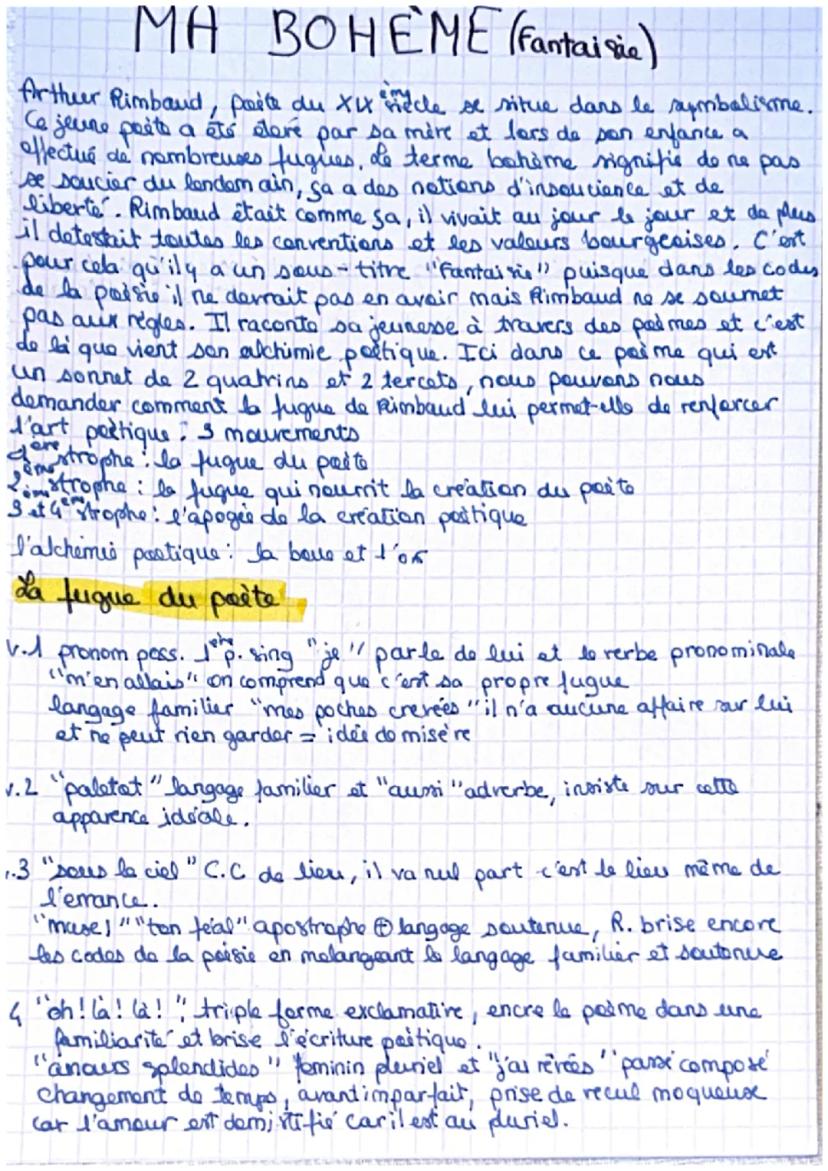 MA BOHÈME (Fantaisie)
Arthur Rimbaud, poète du XIX ème siècle se situe dans le symbolisme.
Ce jeune poète a été élevé par sa mère et lors de son enfance a
effectué de nombreuses fugues. Le terme bohème signifie de ne pas
se soucier du lendemain, ça a des notions d'insouciance et de
liberté. Rimbaud était comme ça, il vivait au jour le jour et de plus
il detestait toutes les conventions et les valeurs bourgeoises. C'est
pour cela qu'il y a un sous-titre "Fantaisie" puisque dans les codes
de la poésie il ne devrait pas en avoir mais Rimbaud ne se soumet
pas aux règles. Il raconte sa jeunesse à travers des poèmes et c'est
de là que vient son alchimie poétique. Ici dans ce poème qui est
un sonnet de 2 quatrins et 2 tercets, nous pouvons nous
demander comment la fugue de Rimbaud lui permet-elle de renforcer
l'art poétique : 3 mouvements
1ère strophe : la fugue du poète
2ème strophe : la fugue qui nourrit la création du poète
3 et 4ème strophe : l'apogée de la création poétique
l'alchimie poetique : la boue et l'or
La fugue du poète
v.1 pronom pess. 1ère p. sing "je" parle de lui et le verbe pronominale
"m'en allais" on comprend que c'est sa propre fugue
langage familier "mes poches crevées" il n'a aucune affaire sur lui
et ne peut rien garder = idée de misère
v.2 "paletot" langage familier et "aussi" adverbe, insiste sur cette
apparence idéale.
.3 "sous le ciel" C.C de lieu, il va nul part c'est le lieu même de
l'errance.
"muse!" "ton féal" apostrophe ⊕ langage soutenue, R. brise encore
les codes de la poésie en melangeant le langage familier et soutenue
4 "oh! là! là!", triple forme exclamative, encre le poème dans une
familiarité et brise l'écriture poétique.
"amours splendides" féminin pluriel et "j'ai rêvées" passé composé
changement de temps, avant imparfait, prise de recul moqueuse
car l'amour est demistifié car il est au pluriel.